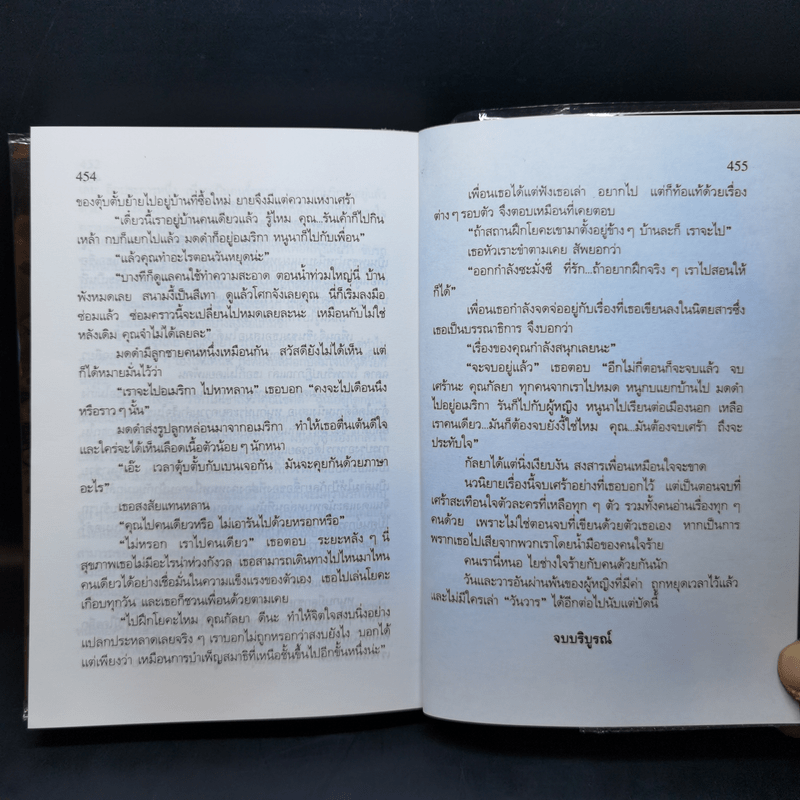 454
ของตุ้บตั้บย้ายไปอยู่บ้านที่ซื้อใหม่ ยายจึงมีแต่ความเหงาเศร้า
“เดี๋ยวนี้เราอยู่บ้านคนเดียวแล้ว รู้ไหม คุณ...รันเค้าก็ไปกิน
เหล้า กบก็แยกไปแล้ว มดดำก็อยู่อเมริกา หนูนาก็ไปกับเพื่อน”
“แล้วคุณทำอะไรตอนวันหยุดน่ะ”
“บางทีก็ดูแลคนใช้ทำความสะอาด ตอนน้ำท่วมใหญ่นี่ บ้าน
พังหมดเลย สนามงี้เป็นสีเทา ดูแล้วโศกจังเลยคุณ นี่ก็เริ่มลงมือ
ซ่อมแล้ว ซ่อมคราวนี้จะเปลี่ยนไปหมดเลยละนะ เหมือนกับไม่ใช่
หลังเดิม คุณจำไม่ได้เลยละ”
มดดำมีลูกชายคนหนึ่งเหมือนกัน สวัสดียังไม่ได้เห็น แต่
ก็ได้หมายมั่นไว้ว่า
“เราจะไปอเมริกา ไปหาหลาน” เธอบอก “คงจะไปเดือนนึง
หรือราว ๆ นั้น”
มดดำส่งรูปลูกหล่อนมาจากอเมริกา ทำให้เธอตื่นเต้นดีใจ
และใคร่จะได้เห็นเลือดเนื้อตัวน้อย ๆ นักหนา
“เอ๊ะ เวลาตุ้บตั้บกับเบนเจอกัน มันจะคุยกันด้วยภาษา
อะไร”
เธอสงสัยแทนหลาน
“คุณไปคนเดียวหรือ ไม่เอารันไปด้วยหรอกหรือ”
“ไม่หรอก เราไปคนเดียว” เธอตอบ ระยะหลัง ๆ นี่
สุขภาพเธอไม่มีอะไรน่าห่วงกังวล เธอสามารถเดินทางไปไหนมาไหน
คนเดียวได้อย่างเชื่อมั่นในความแข็งแรงของตัวเอง เธอไปเล่นโยคะ
เกือบทุกวัน และเธอก็ชวนเพื่อนด้วยตามเคย
“ไปฝึกโยคะไหม คุณ กัลยา ดีนะ ทำให้จิตใจสงบนิ่งอย่าง
แปลกประหลาดเลยจริง ๆ เราบอกไม่ถูกหรอกว่าสงบยังไง บอกได้
แต่เพียงว่า เหมือนการบำเพ็ญสมาธิที่เหนือชั้นขึ้นไปอีกชั้นหนึ่งน่ะ”
455
เพื่อนเธอได้แต่ฟังเธอเล่า อยากไป แต่ก็ท้อแท้ด้วยเรื่อง
ต่าง ๆ รอบตัว จึงตอบเหมือนที่เคยตอบ
“ถ้าสถานฝึกโยคะเขามาตั้งอยู่ข้าง ๆ บ้านละก็ เราจะไป”
เธอหัวเราะขำตามเคย สัพยอกว่า
“ออกกำลังซะมั่งซี ที่รัก...ถ้าอยากฝึกจริง ๆ เราไปสอนให้
ก็ได้”
เพื่อนเธอกำลังจดจ่ออยู่กับเรื่องที่เธอเขียนลงในนิตยสารซึ่ง
เธอเป็นบรรณาธิการ จึงบอกว่า
“เรื่องของคุณกำลังสนุกเลยนะ”
“จะจบอยู่แล้ว” เธอตอบ “อีกไม่กี่ตอนก็จะจบแล้ว จบ
เศร้านะ คุณ กัลยา ทุกคนจากเราไปหมด หนูกบแยกบ้านไป มดดำ
ไปอยู่อเมริกา รันก็ไปกับผู้หญิง หนูนาไปเรียนต่อเมืองนอก เหลือ
เราคนเดียว...มันก็ต้องจบยังงี้ใช่ไหม คุณ...มันต้องจบเศร้า ถึงจะ
ประทับใจ”
กัลยาได้แต่นิ่งเงียบงัน สงสารเพื่อนเหมือนใจจะขาด
นวนิยายเรื่องนี้จบเศร้าอย่างที่เธอบอกไว้ แต่เป็นตอนจบที่
เศร้าสะเทือนใจตัวละครที่เหลือทุก ๆ ตัว รวมทั้งคนอ่านเรื่องทุก ๆ
คนด้วย เพราะไม่ใช่ตอนจบที่เขียนด้วยตัวเธอเอง หากเป็นการ
พรากเธอไปเสียจากพวกเราโดยน้ำมือของคนใจร้าย
คนเรานี่หนอ ไยช่างใจร้ายกับคนด้วยกันนัก
วันและวารอันผ่านพ้นของผู้หญิงที่มีค่า ถูกหยุดเวลาไว้แล้ว
และไม่มีใครเล่า “วันวาร” ได้อีกต่อไปนับแต่บัดนี้
จบบริบูรณ์